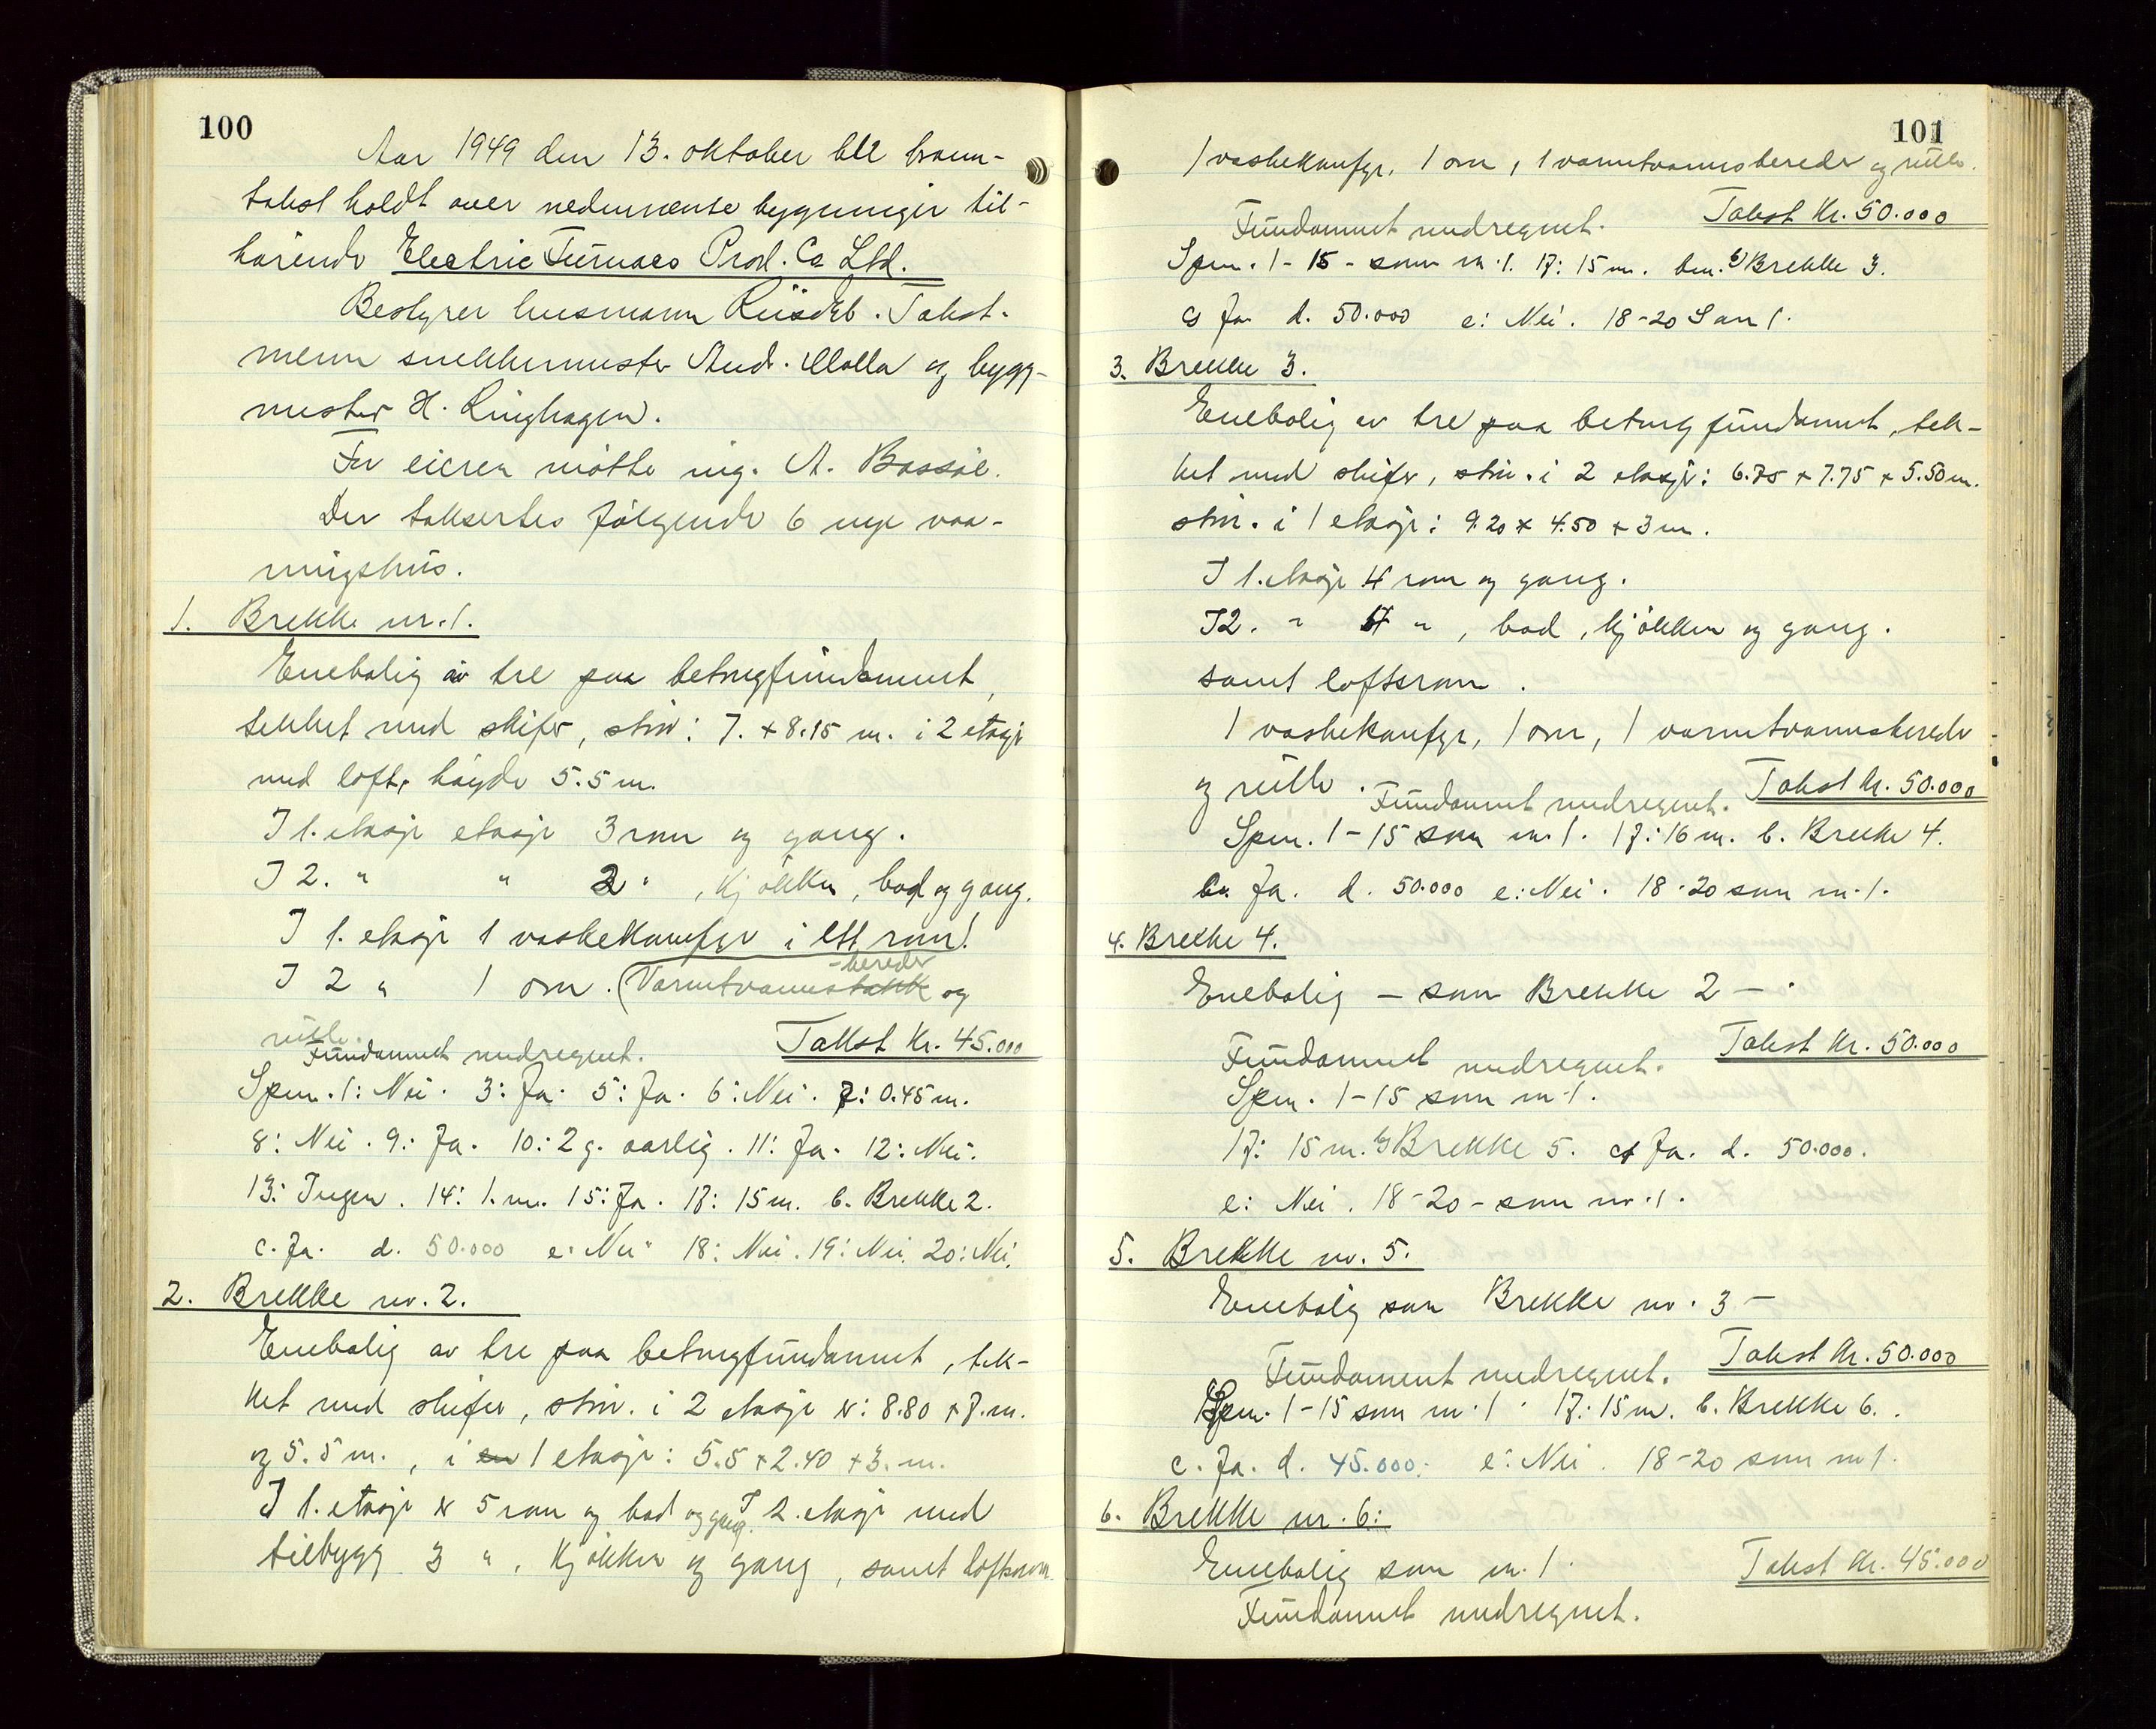 100
Aar 1949 den 13. oktober ble brann-
takst holdt over nedennevnte bygninger til-
hørende Electric Furnace Prod. Co Ltd.
Bestyrer husmann . Takst-
menn snekkermester And. Molla og bygg-
mester H. Ringhagen.
For eieren møtte ing. A. Bassøe.
Der takseres følgende 6 nye vaa-
ningshus.
1. Brekke nr. 1.
Enebolig av tre paa betongfundament,
tekket med skifer, stør: 7. x 8.15 m. i 2 etasje
med loft, høyde 5.5 m.
I 1. etasje etasje 3 rom og gang.
I 2. " " 2 " , kjøkken, bad og gang.
I 1. etasje 1 vaskekomfyr i ett rom.
I 2 " 1 ovn. (Varmtvannstank -bereder og
rulle.
Fundament medregnet. Takst Kr. 45.000
Spm. 1: Nei. 3: Ja. 5: Ja. 6: Nei. 7: 0.45 m.
8: Nei. 9: Ja. 10: 2 g. aarlig. 11: Ja. 12: Nei.
13: Ingen. 14: 1. m. 15: Ja. 17: 15 m. b. Brekke 2.
c. Ja. d. 50.000 e: Nei. 18: Nei. 19: Nei. 20: Nei.
2. Brekke nr. 2.
Enebolig av tre paa betongfundament, tek-
ket med skifer, stør. i 2 etasje er: 8.80 x 7. m.
og 5.5 m., i en 1 etasje: 5.5 x 2.40 x 3. m.
I 1. etasje er 5 rom og bad og gang. I 2. etasje med
tilbygg 3 " , kjøkken og gang, samt loftsrom
101
1 vaskekomfyr. 1 ovn, 1 varmtvannsbereder og rulle.
Fundament medregnet. Takst Kr. 50.000
Spm. 1-15 - som nr. 1. 17: 15 m. b) Brekke 3.
c) Ja d. 50.000 e: Nei. 18-20 Som 1.
3. Brekke 3.
Enebolig av tre paa betong fundament, tek-
ket med skifer, stør. i 2 etasje: 6.75 x 7.75 x 5.50 m.
stør. i 1 etasje: 9.20 x 4.50 x 3 m.
I 1. etasje 4 rom og gang.
I 2. " 4 " , bad, kjøkken og gang.
samt loftsrom.
1 vaskekomfyr, 1 ovn, 1 varmtvannsbereder
og rulle. Fundament medregnet. Takst Kr. 50.000
Spm. 1-15 som nr. 1. 17: 16 m. b. Brekke 4.
Ja. d. 50.000 e: Nei. 18-20 som nr. 1.
4. Brekke 4.
Enebolig - som Brekke 2 - .
Fundament medregnet. Takst Kr. 50.000
Spm. 1-15 som nr 1.
17: 15 m. b) Brekke 5. c) Ja. d. 50.000.
e: Nei. 18-20 - som nr. 1.
5. Brekke nr. 5.
Enebolig som Brekke nr. 3 -
Fundament medregnet. Takst Kr. 50.000
Spm. 1-15 som nr. 1. 17: 15 m. b. Brekke 6.
c. Ja. d. 45.000. e: Nei. 18-20 som nr 1.
6. Brekke nr. 6:
Enebolig som nr. 1. Takst Kr. 45.000
Fundament medregnet.